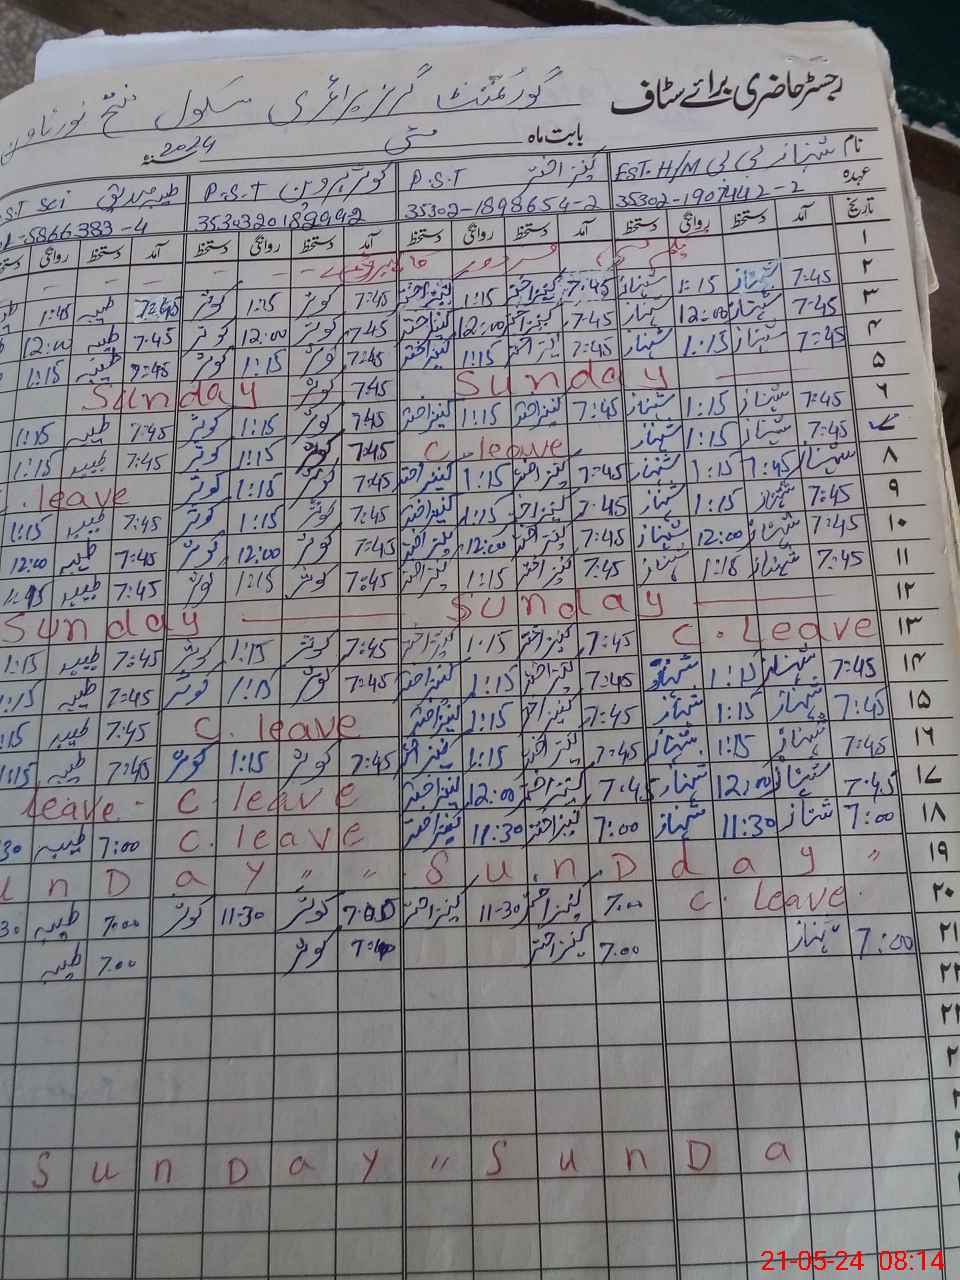 رجسٹر حاضری برائے سٹاف گورنمنٹ گرلز پرائمری سکول فتح نور
بابت ماہ مئی سنہ 2024
نام شہناز بی بی EST. H/M کنیز اختر P.S.T کوثر پروین P.S.T طیبہ صدیق S.T Sci
عہدہ 35302-1907442-2 35302-1898654-2 35303201899992 5866383-4
تاریخ آمد دستخط روانگی دستخط آمد دستخط روانگی دستخط آمد دستخط روانگی دستخط آمد دستخط روانگی
۱ یکم مئی
۲ 7:45 شہناز 1:15 شہناز 7:45 کنیز اختر 1:15 کنیز اختر 7:45 کوثر 1:15 کوثر 7:45 طیبہ 1:15
۳ 7:45 شہناز 12:00 شہناز 7:45 کنیز اختر 12:00 کنیز اختر 7:45 کوثر 12:00 کوثر 7:45 طیبہ 12:00
۴ 7:45 شہناز 1:15 شہناز 7:45 کنیز اختر 1:15 کنیز اختر 7:45 کوثر 1:15 کوثر 7:45 طیبہ 1:15
۵ Sunday 7:45 کوثر Sunday
۶ 7:45 شہناز 1:15 شہناز 7:45 کنیز اختر 1:15 کنیز اختر 7:45 کوثر 1:15 کوثر 7:45 طیبہ 1:15
۷ 7:45 شہناز 1:15 شہناز C. leave 7:45 کوثر 1:15 کوثر 7:45 طیبہ 1:15
۸ شہناز 7:45 1:15 شہناز 7:45 کنیز اختر 1:15 کنیز اختر 7:45 کوثر 1:15 کوثر . leave
۹ 7:45 شہناز 1:15 شہناز 7:45 کنیز اختر 1:15 کنیز اختر 7:45 کوثر 1:15 کوثر 7:45 طیبہ 1:15
۱۰ 7:45 شہناز 12:00 شہناز 7:45 کنیز اختر 12:00 کنیز اختر 7:45 کوثر 12:00 کوثر 7:45 طیبہ 12:00
۱۱ 7:45 شہناز 1:15 شہناز 7:45 کنیز اختر 1:15 کنیز اختر 7:45 کوثر 1:15 کوثر 7:45 طیبہ 1:15
۱۲ Sunday Sunday
۱۳ C. Leave 7:45 کنیز اختر 1:15 کنیز اختر 7:45 کوثر 1:15 کوثر 7:45 طیبہ 1:15
۱۴ 7:45 شہناز 1:15 شہناز 7:45 کنیز اختر 1:15 کنیز اختر 7:45 کوثر 1:15 کوثر 7:45 طیبہ 1:15
۱۵ 7:45 شہناز 1:15 شہناز 7:45 کنیز اختر 1:15 کنیز اختر C. leave 7:45 طیبہ :15
۱۶ 7:45 شہناز 1:15 شہناز 7:45 کنیز اختر 1:15 کنیز اختر 7:45 کوثر 1:15 کوثر 7:45 طیبہ 1:15
۱۷ 7:45 شہناز 12:00 شہناز 7:45 کنیز اختر 12:00 کنیز اختر C. leave leave
۱۸ 7:00 شہناز 11:30 شہناز 7:00 کنیز اختر 11:30 کنیز اختر C. leave 7:00 طیبہ 30
۱۹ SunDday " SunDay " "
۲۰ C. leave. 7:00 کنیز اختر 11-30 کنیز اختر 7:00 کوثر 11-30 کوثر 7:00 طیبہ 30
۲۱ 7:00 شہناز 7.00 کنیز اختر 7:00 کوثر 7.00 طیبہ
۲۲
SunDay " SunDa
21-05-24 08:14